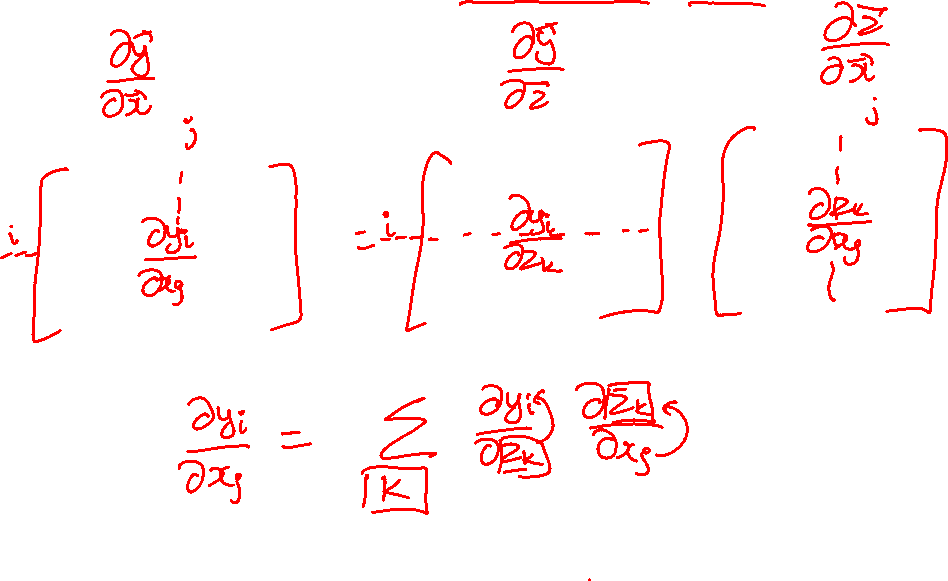 ∂y⃗/∂x⃗ ∂y⃗/∂z⃗ ∂z⃗/∂x⃗
j j
i [ ∂yᵢ/∂xⱼ ] = i [ - - - ∂yᵢ/∂zₖ - - - ] [ ∂zₖ/∂xⱼ ]
∂yᵢ/∂xⱼ = ∑ₖ ∂yᵢ/∂zₖ ∂zₖ/∂xⱼ